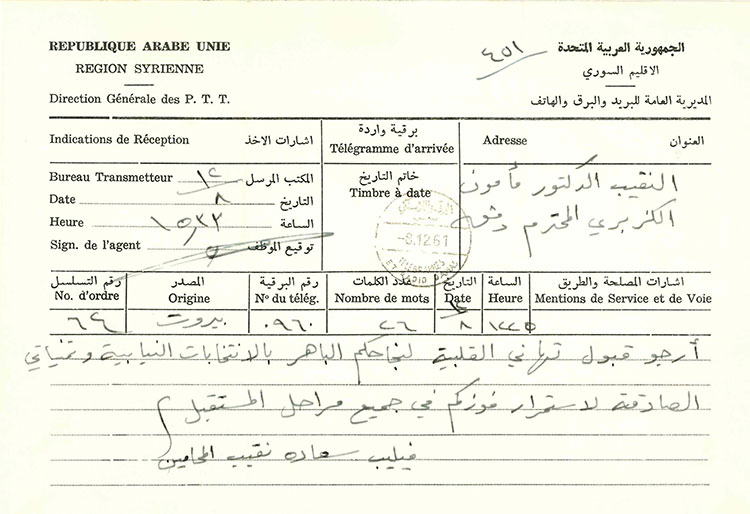 REPUBLIQUE ARABE UNIE
REGION SYRIENNE
Direction Générale des P. T. T.
٤٥١
الجمهورية العربية المتحدة
الاقليم السوري
المديرية العامة للبريد والبرق والهاتف
Indications de Réception اشارات الاخذ
برقية واردة
Télégramme d'arrivée
Adresse العنوان
Bureau Transmetteur ١٢ المكتب المرسل
Date ٨ التاريخ
Heure ١٥,٣٢ الساعة
Sign. de l'agent توقيع الموظف
خاتم التاريخ
Timbre à date
-8.12.61
النقيب الدكتور مأمون
الكزبري المحترم دمشق
رقم التسلسل المصدر رقم البرقية عدد الكلمات التاريخ الساعة اشارات المصلحة والطريق
No. d'ordre Origine Nº du télég. Nombre de mots Date Heure Mentions de Service et de Voie
٦٤ بيروت ٠٩٦٠ ٢٦ ٨ ١٢٢٥
أرجو قبول تهاني القلبية لنجاحكم الباهر بالانتخابات النيابية وتمنياتي
الصادقة لاستمرار فوزكم في جميع مراحل المستقبل
فيليب سعاده نقيب المحامين